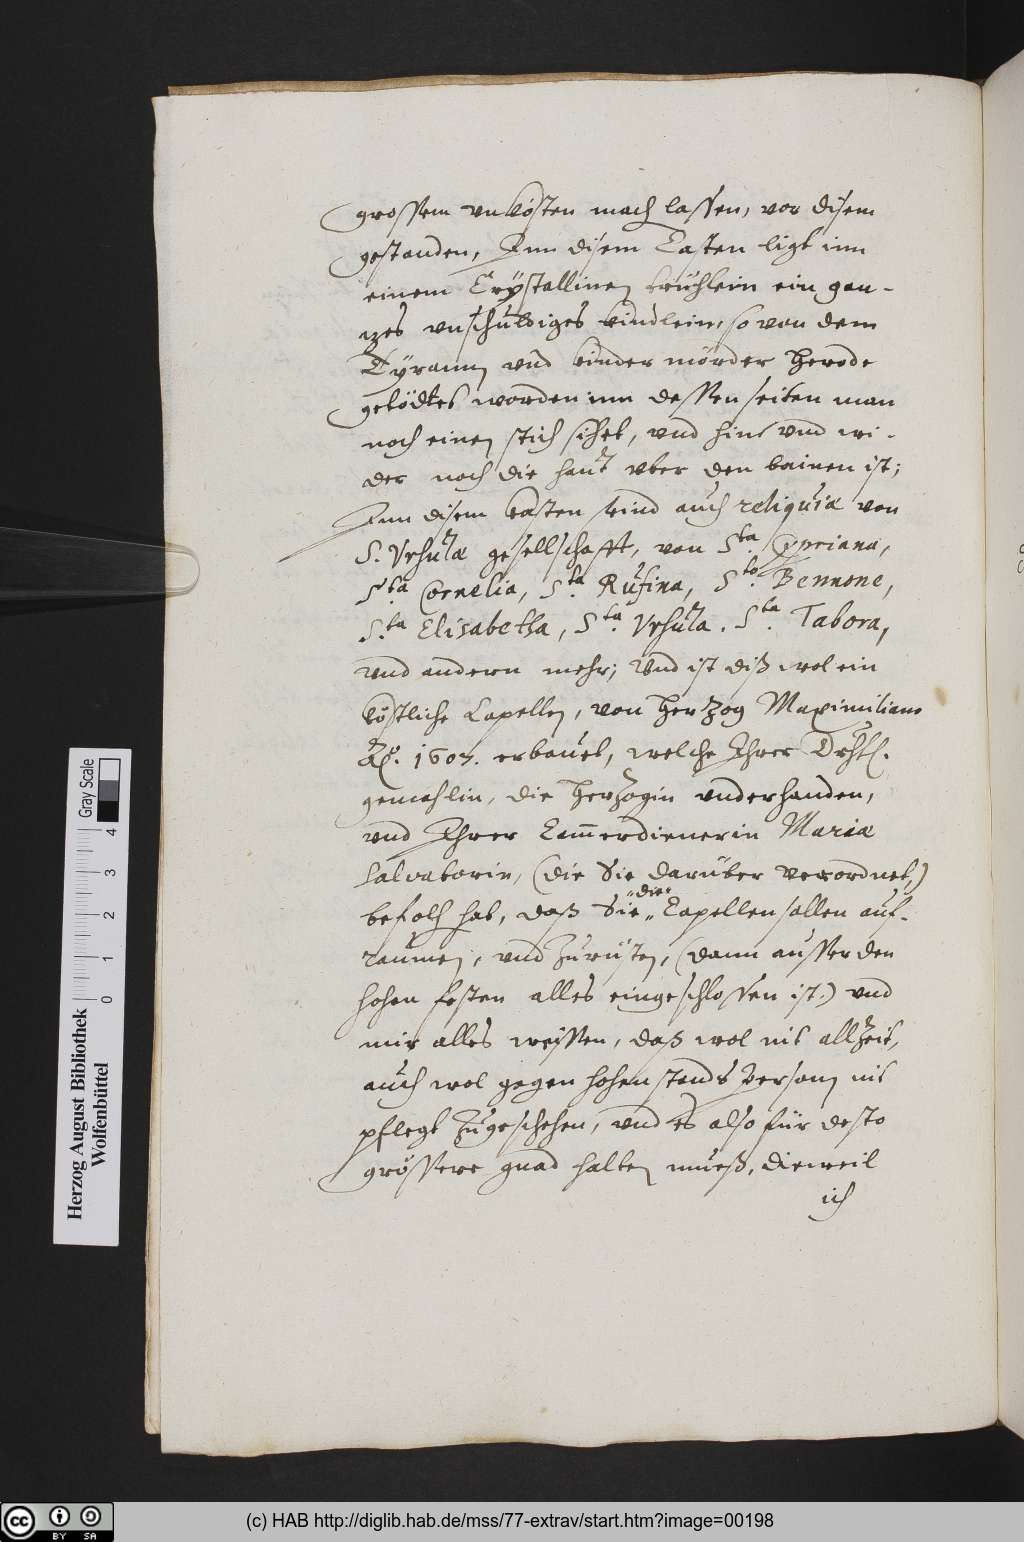 grossem vnkösten mach lassen, vor disem
gestanden, Inn disem Casten ligt inn
einem Crystallinen trühlein ein gan-
zes vnschuldiges kindlein, so von dem
Tyrannen vnd kinder mörder Herode
getödtet worden inn dessen seiten man
noch einen stich sihet, vnd hin vnd wi-
der noch die haut vber den bainen ist;
Inn disem kasten seind auch reliquiæ von
S. Vrsulæ gesellschafft, von Sta. Cypriana,
Sta. Cornelia, Sta. Rufina, Sto. Bennone,
Sta. Elisabetha, Sta. Vrsula. Sta. Tabora,
vnd andern mehr; Vnd ist diß wol ein
köstliche Capellen, von Hertzog Maximiliano
Ao. 1607. erbauet, welche Ihrer Drhtl.
gemahlin, die Hertzogin vnderhanden,
vnd Ihrer Cammerdienerin Mariæ
Salvatorin, (die Sie darüber verordnet,)
befolh hab, daß Sie "die" Capellen sollen auf-
raumen, vnd zurüsten, (dann ausser den
hohen festen alles eingeschlossen ist.) vnd
mir alles weissen, daß wol nit allzeit,
auch wol gegen hohen stands Personen nit
pflegt zugeschehen, vnd es also für desto
grössere gnad halten mueß, dieweil
ich
Gray Scale
0 1 2 3 4
Herzog August Bibliothek
Wolfenbüttel
cc BY SA
(c) HAB http://diglib.hab.de/mss/77-extrav/start.htm?image=00198